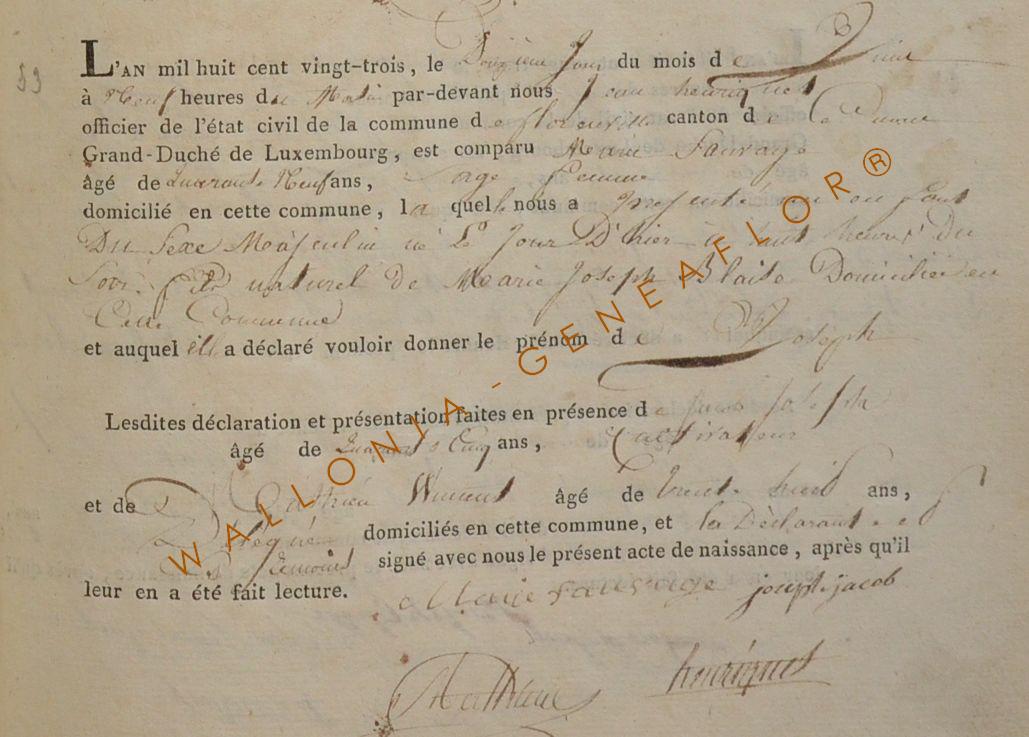 39
L'AN mil huit cent vingt-trois, le Douzieme Jour du mois de Juin
à Neuf heures du Matin par-devant nous Jean henriquet
officier de l'état civil de la commune de florenville canton d
Grand-Duché de Luxembourg, est comparu Marie Sauvage
âgé de Quarante Neuf ans, Sage Femme
domicilié en cette commune, la quelle nous a présenté un enfant
Du Sexe Masculin né Le Jour D'hier à huit heures Du
Soir, fils naturel de Marie Joseph Blaise Domiciliée en
Cette Commune
et auquel ell a déclaré vouloir donner le prénom de Joseph
Lesdites déclaration et présentation faites en présence de Jacob Joseph
âgé de Quarante Cinq ans, Cultivateur
et de Mathieu Vincent âgé de trente huit ans,
domiciliés en cette commune, et la Déclarante et
Témoins signé avec nous le présent acte de naissance, après qu'il
leur en a été fait lecture.
Marie sauvage joseph jacob
Mathieu henriquet
WALLONIA-GENEAFLOR®